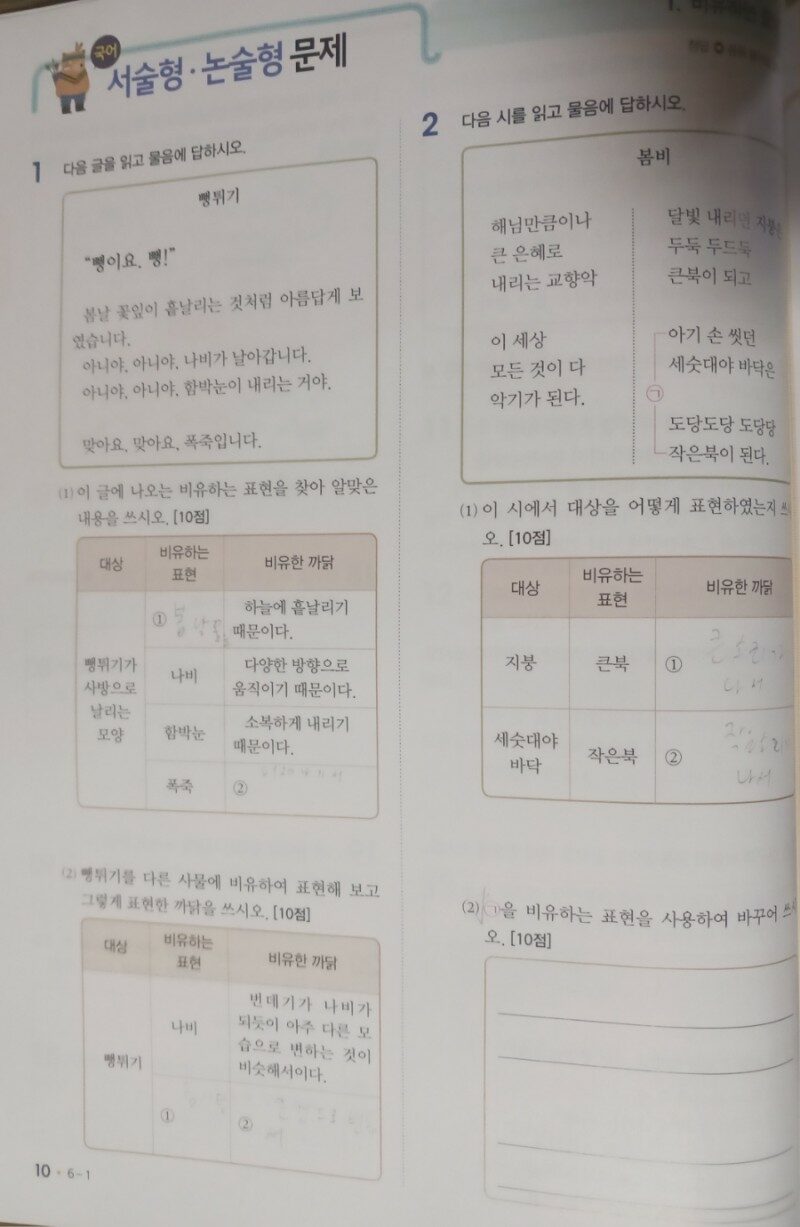 국어
서술형·논술형 문제
1. 비유하는
정답
1 다음 글을 읽고 물음에 답하시오.
뻥튀기
“뻥이요. 뻥!”
봄날 꽃잎이 흩날리는 것처럼 아름답게 보
였습니다.
아니야, 아니야, 나비가 날아갑니다.
아니야, 아니야, 함박눈이 내리는 거야.
맞아요, 맞아요, 폭죽입니다.
(1) 이 글에 나오는 비유하는 표현을 찾아 알맞은
내용을 쓰시오. [10점]
대상
비유하는
표현
비유한 까닭
뻥튀기가
사방으로
날리는
모양
①
하늘에 흩날리기
때문이다.
나비
다양한 방향으로
움직이기 때문이다.
함박눈
소복하게 내리기
때문이다.
폭죽
②
(2) 뻥튀기를 다른 사물에 비유하여 표현해 보고
그렇게 표현한 까닭을 쓰시오. [10점]
대상
비유하는
표현
비유한 까닭
뻥튀기
나비
번데기가 나비가
되듯이 아주 다른 모
습으로 변하는 것이
비슷해서이다.
①
②
10 • 6-1
2 다음 시를 읽고 물음에 답하시오.
봄비
해님만큼이나
큰 은혜로
내리는 교향악
이 세상
모든 것이 다
악기가 된다.
달빛 내리던 지붕은
두둑 두드둑
큰북이 되고
아기 손 씻던
세숫대야 바닥은
㉠
도당도당 도당당
작은북이 된다.
(1) 이 시에서 대상을 어떻게 표현하였는지 쓰시
오. [10점]
대상
비유하는
표현
비유한 까닭
지붕
큰북
① 큰 소리가
나서
세숫대야
바닥
작은북
②
나서
(2) ㉠을 비유하는 표현을 사용하여 바꾸어 쓰시
오. [10점]